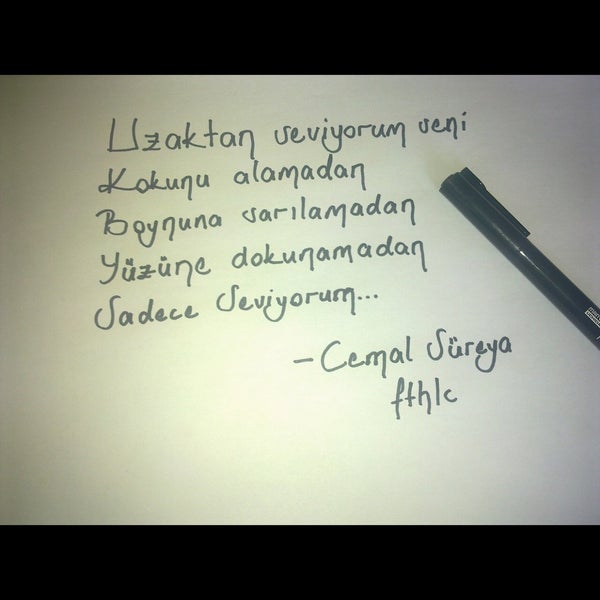 Uzaktan seviyorum seni
Kokunu alamadan
Boynuna sarılamadan
Yüzüne dokunamadan
Sadece Seviyorum...
- Cemal Süreya
fthlc